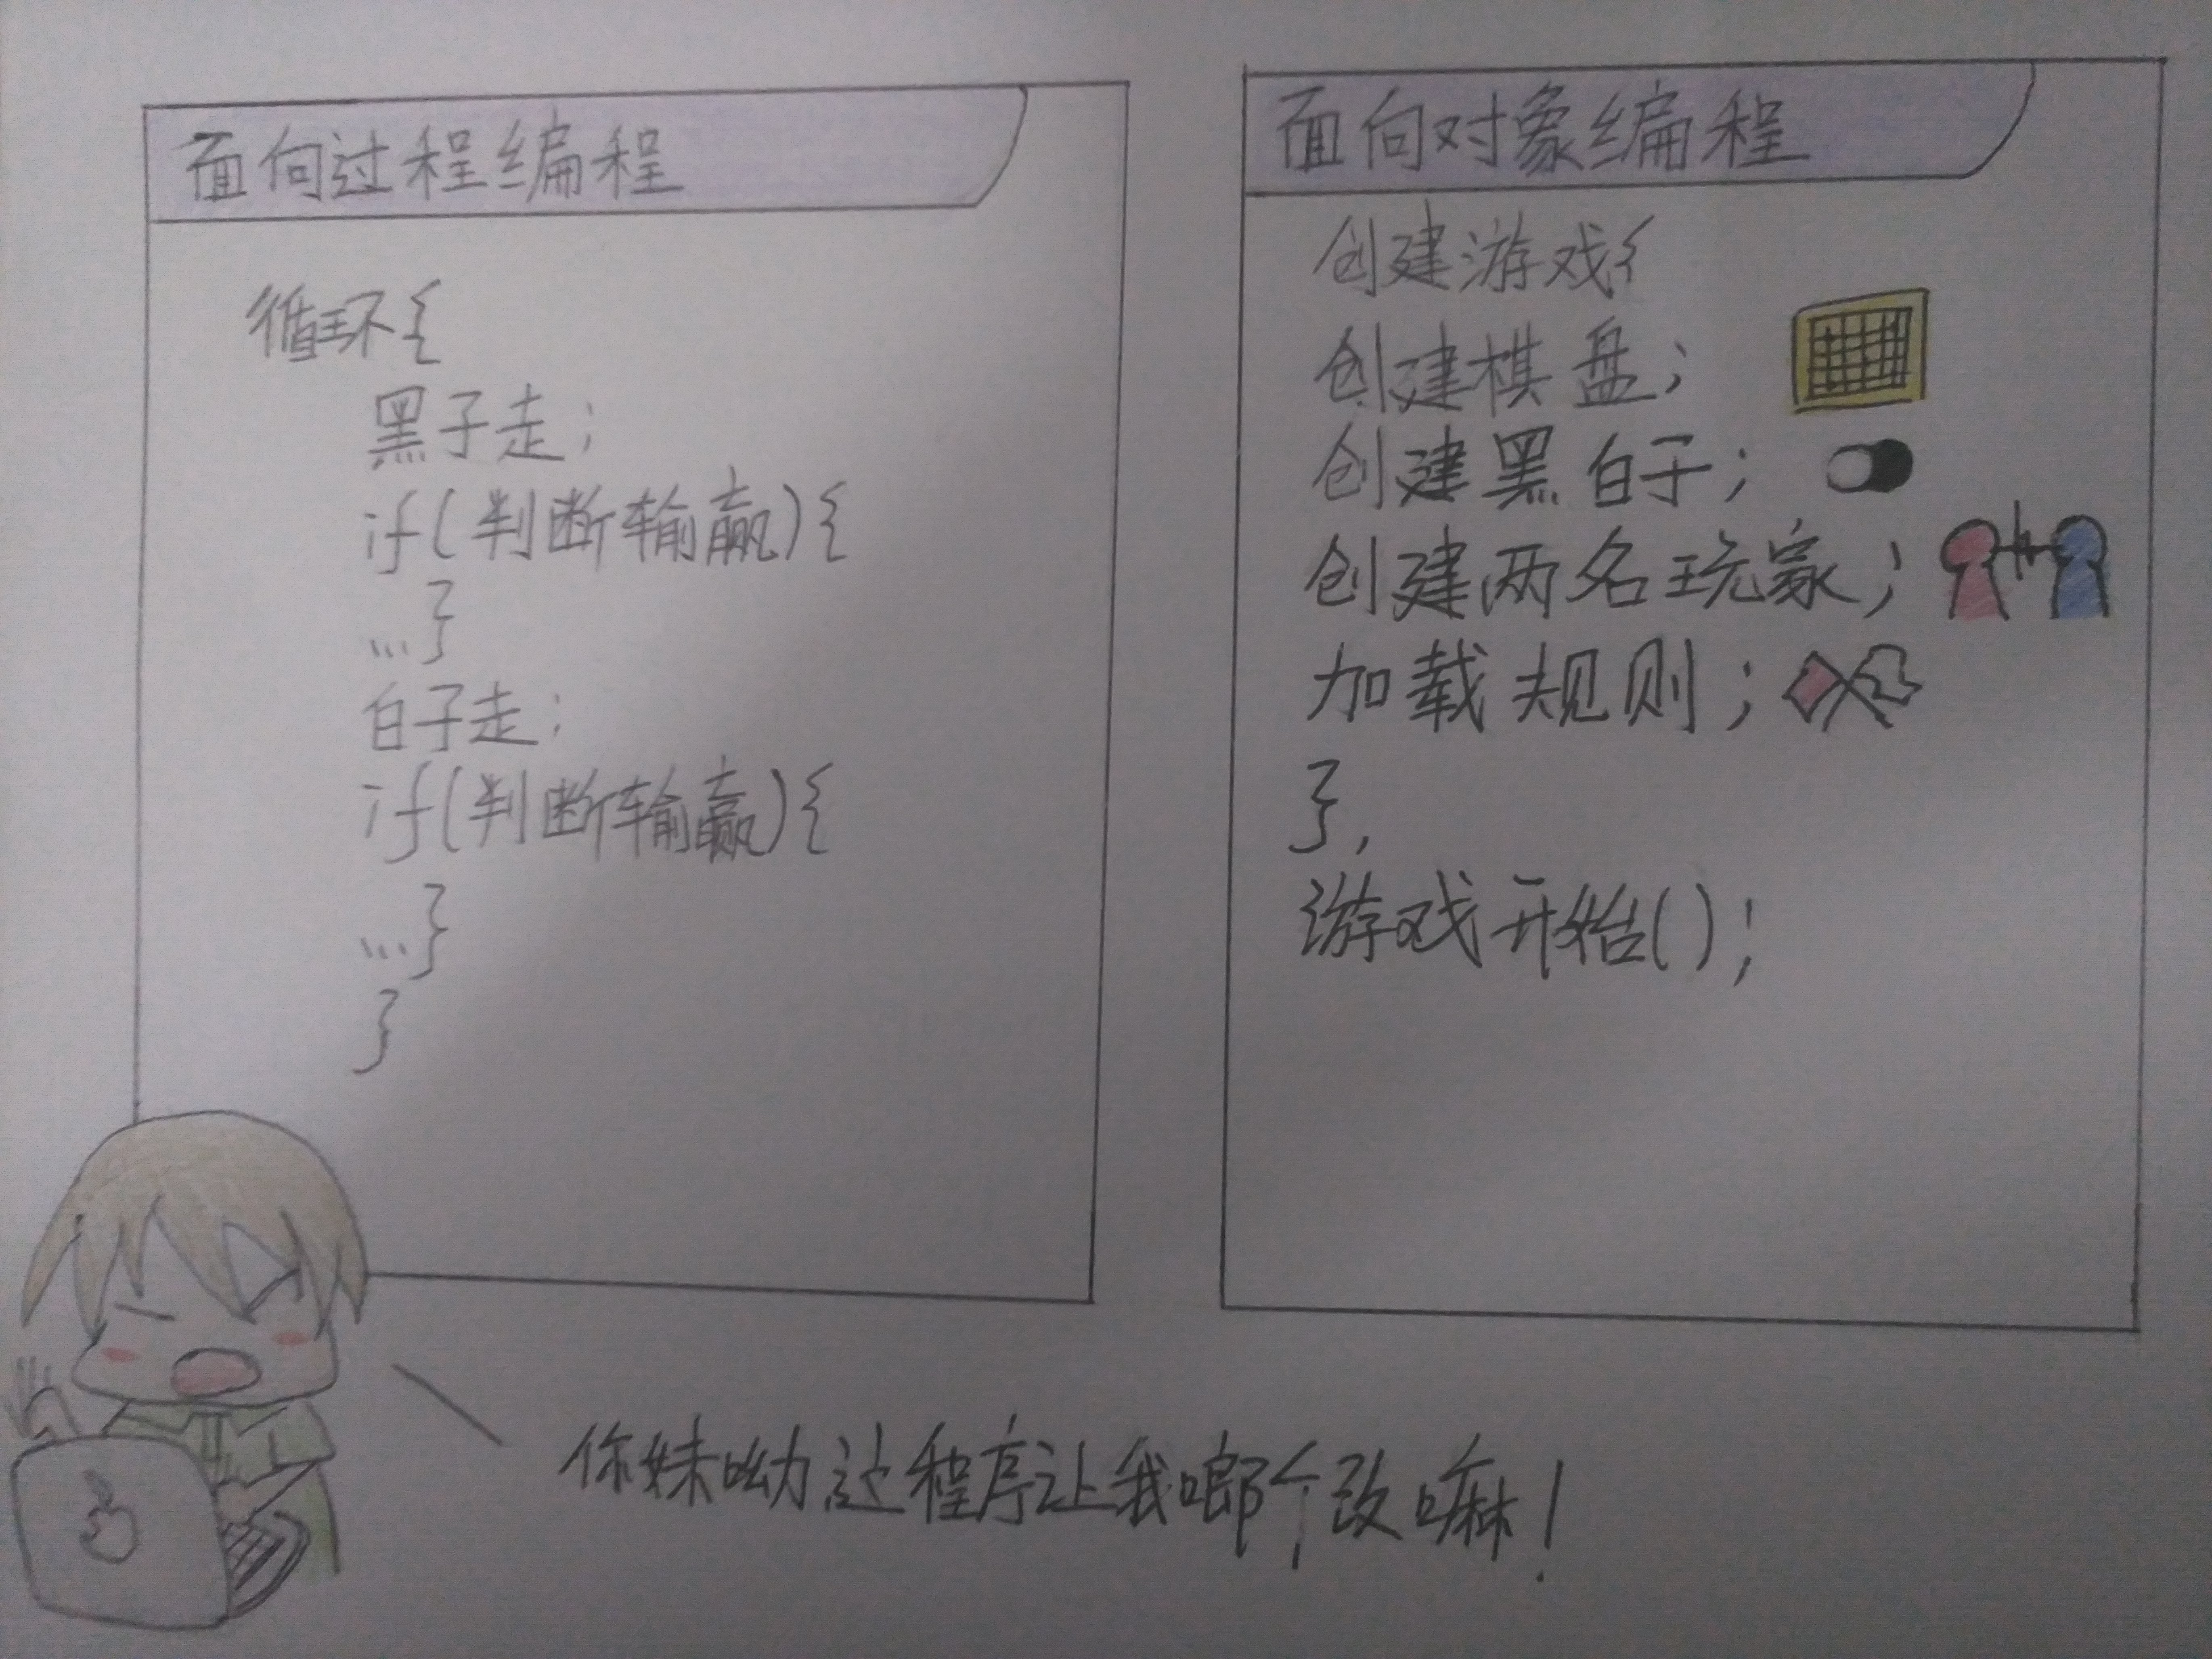 面向过程编程
循环{
黑子走;
if(判断输赢){
...}
白子走;
if(判断输赢){
...}
}
面向对象编程
创建游戏{
创建棋盘;
创建黑白子;
创建两名玩家;
加载规则;
},
游戏开始();
你妹呦这程序让我啷个改嘛!